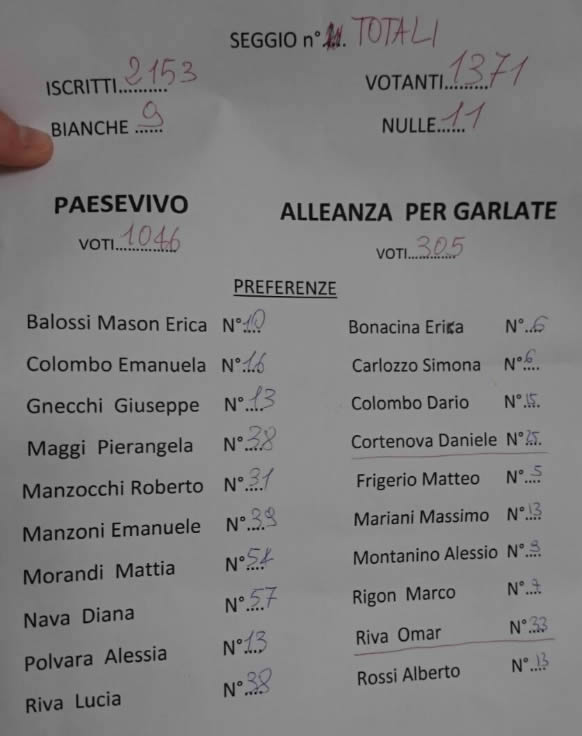 SEGGIO n° 11. TOTALI
ISCRITTI...2153
VOTANTI...1371
BIANCHE ...9
NULLE...11
PAESEVIVO
VOTI...1046
ALLEANZA PER GARLATE
VOTI...305
PREFERENZE
Balossi Mason Erica N°...10
Colombo Emanuela N°...16
Gnecchi Giuseppe N°...13
Maggi Pierangela N°...38
Manzocchi Roberto N°...31
Manzoni Emanuele N°...39
Morandi Mattia N°...
Nava Diana N°...57
Polvara Alessia N°...13
Riva Lucia N°...38
Bonacina Erika N°...6
Carlozzo Simona N°...6
Colombo Dario N°...15
Cortenova Daniele N°...25
Frigerio Matteo N°...5
Mariani Massimo N°...13
Montanino Alessio N°...9
Rigon Marco N°...
Riva Omar N°...33
Rossi Alberto N°...13